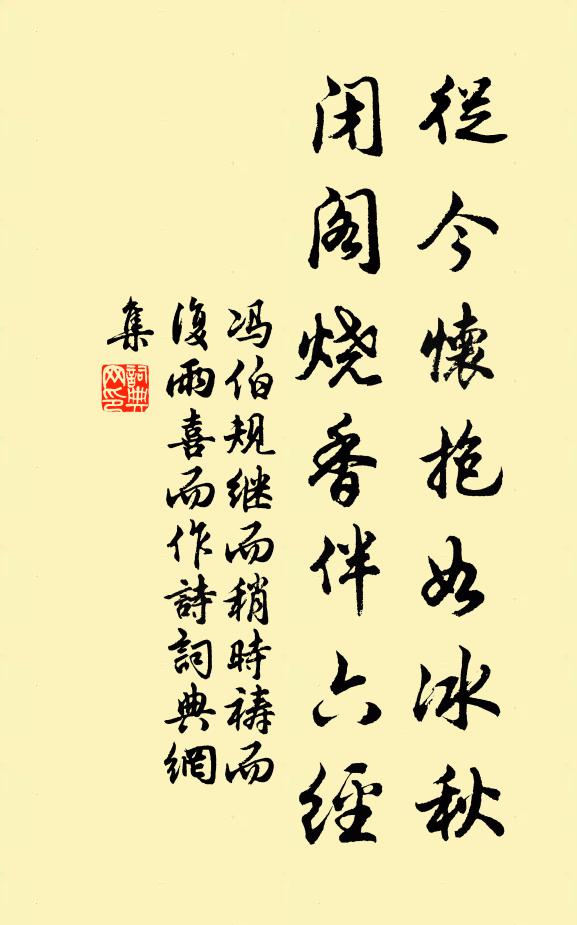 從今懷抱如冰秋
闭阁烧香伴六經
冯伯规继而稍時祷而
復雨喜而作詩詞典網
集
詞典
网印